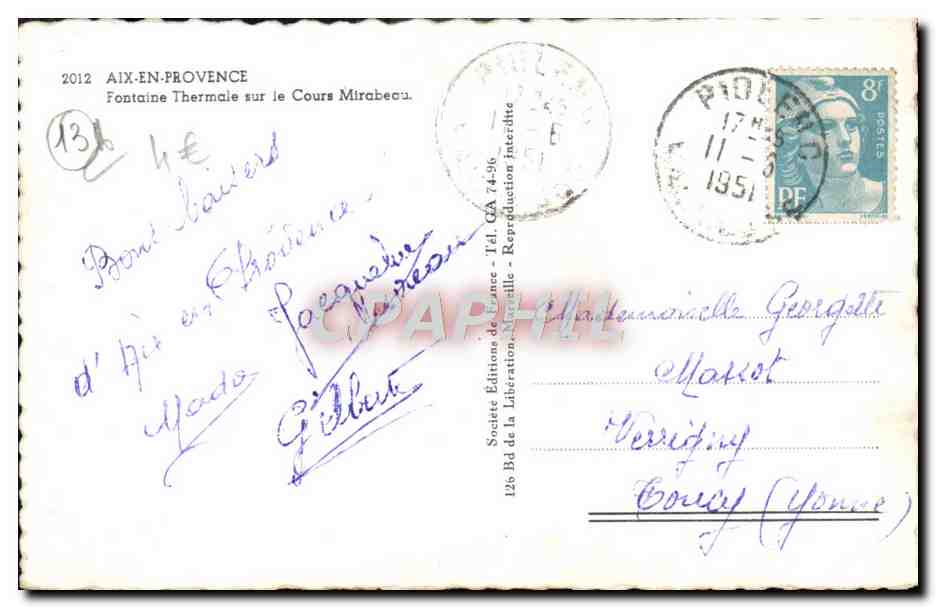 2012 AIX-EN-PROVENCE
Fontaine Thermale sur le Cours Mirabeau.
13
4€
Bons baisers
d'Aix en Provence
Mado
Jacqueline
Gilberte
Société Éditions de France - Tél. GA 74-96
126 Bd de la Libération, Marseille - Reproduction interdite
PIOLENC
17 H
11 - 6
1951
8F
POSTES
RF
Mademoiselle Georgette
Massot
Verrigny
Toucy (Yonne)
CPAPHIL